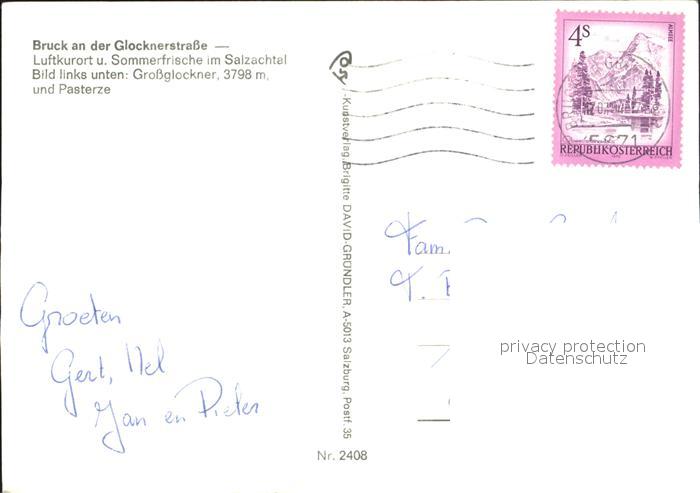 Bruck an der Glocknerstraße —
Luftkurort u. Sommerfrische im Salzachtal
Bild links unten: Großglockner, 3798 m,
und Pasterze
Kunstverlag Brigitte DAVID-GRÜNDLER, A-5013 Salzburg, Postf. 35
4S
ALMSEE
5671
REPUBLIK ÖSTERREICH
Fam.
Groeten
Gert, Nel
Jan en Pieter
privacy protection
Datenschutz
Nr. 2408